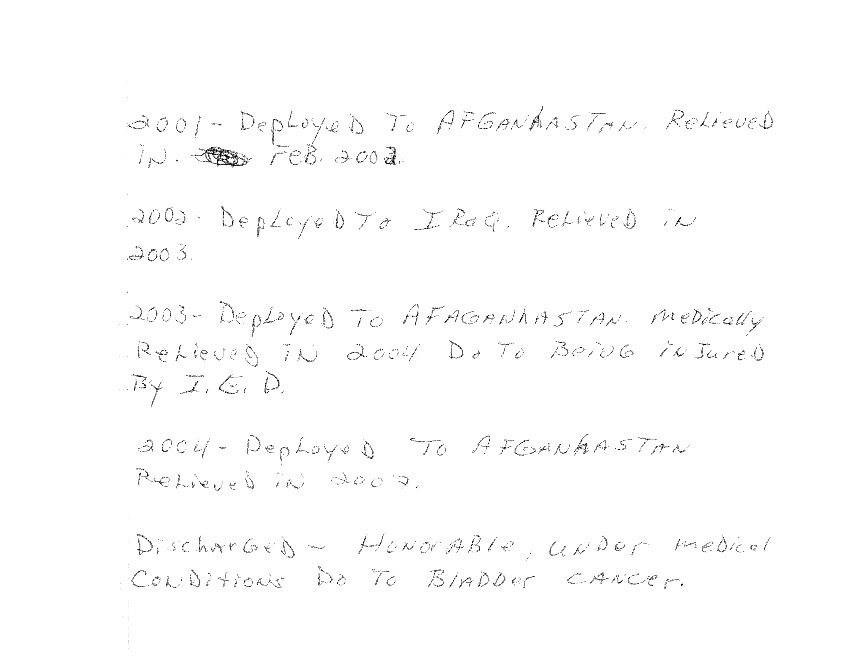 2001 - Deployed To AFGANhASTAN. Relieved
IN. FEB. 2002.
2002. Deployed To IRaQ. Relieved in
2003.
2003 - Deployed To AFAGANhASTAN. medically
Relieved IN 2004 Do To Being inJured
By I.E.D.
2004 - Deployed To AFGANhASTAN
Relieved in 2007.
DischarGeD - HonorABle, unDor medical
CONDitions Do To BlADDer CANCer.